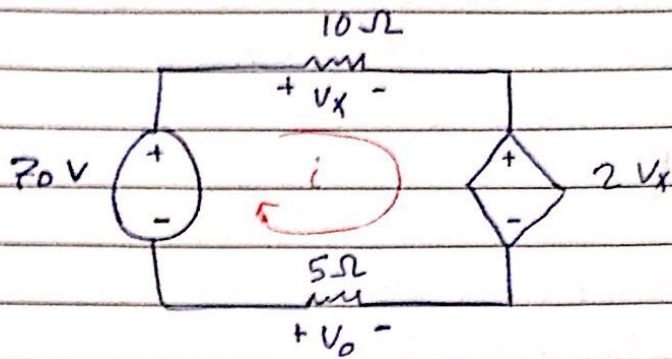 10 Ω
+ Vx -
+ +
70 V i 2 Vx
- -
5 Ω
+ Vo -